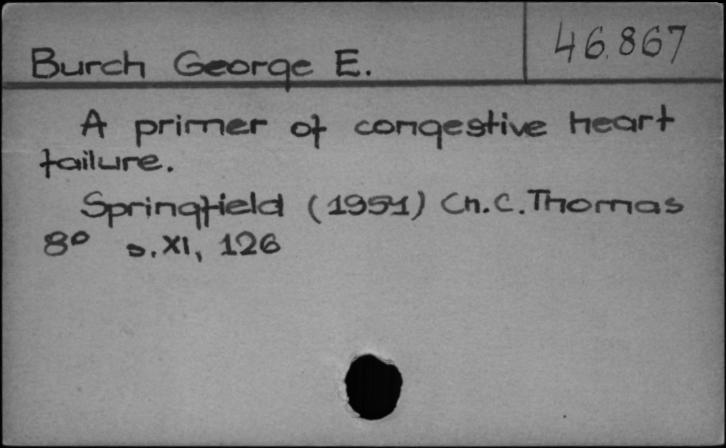 Burch George E.
46.867
A primer of congestive heart
failure.
Springfield (1951) Ch.C.Thomas
8° s.XI, 126